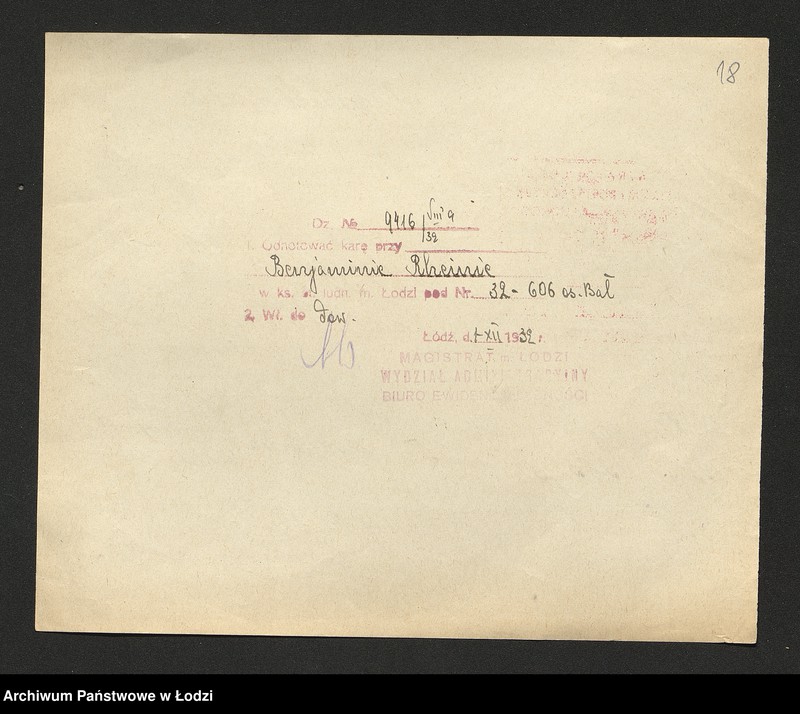 18
Dz. № 9416/VIIIa/32
1. Odnotować karę przy
Benjaminie Rheinie
w ks. ludn. m. Łodzi pod Nr. 32 - 606 os. Bał
2. Wł. do dow.
Łódź, d. XII 1932 r.
MAGISTRAT m. ŁODZI
WYDZIAŁ ADMINISTRACYJNY
BIURO EWIDENCJI LUDNOŚCI
Archiwum Państwowe w Łodzi